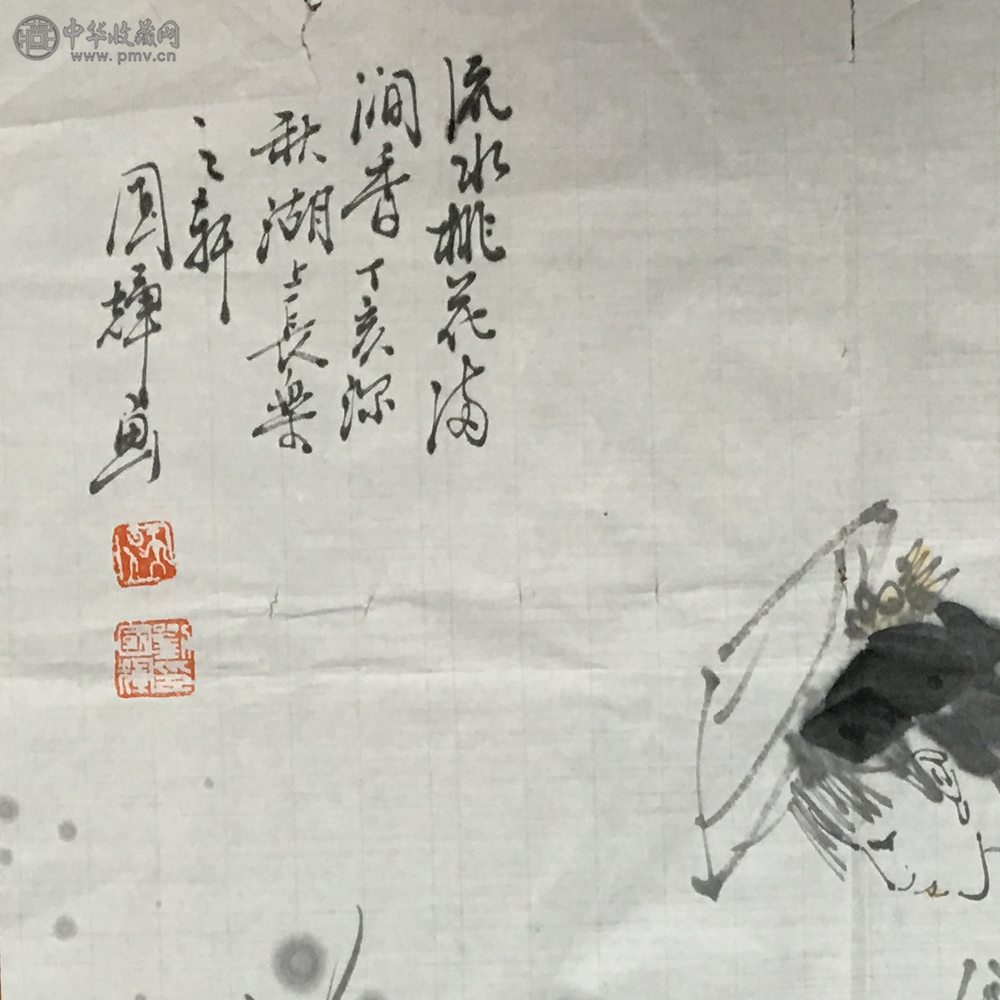 中华收藏网
www.pmv.cn
流水桃花满
涧香丁亥深
秋湖上長樂
之轩
国辉画